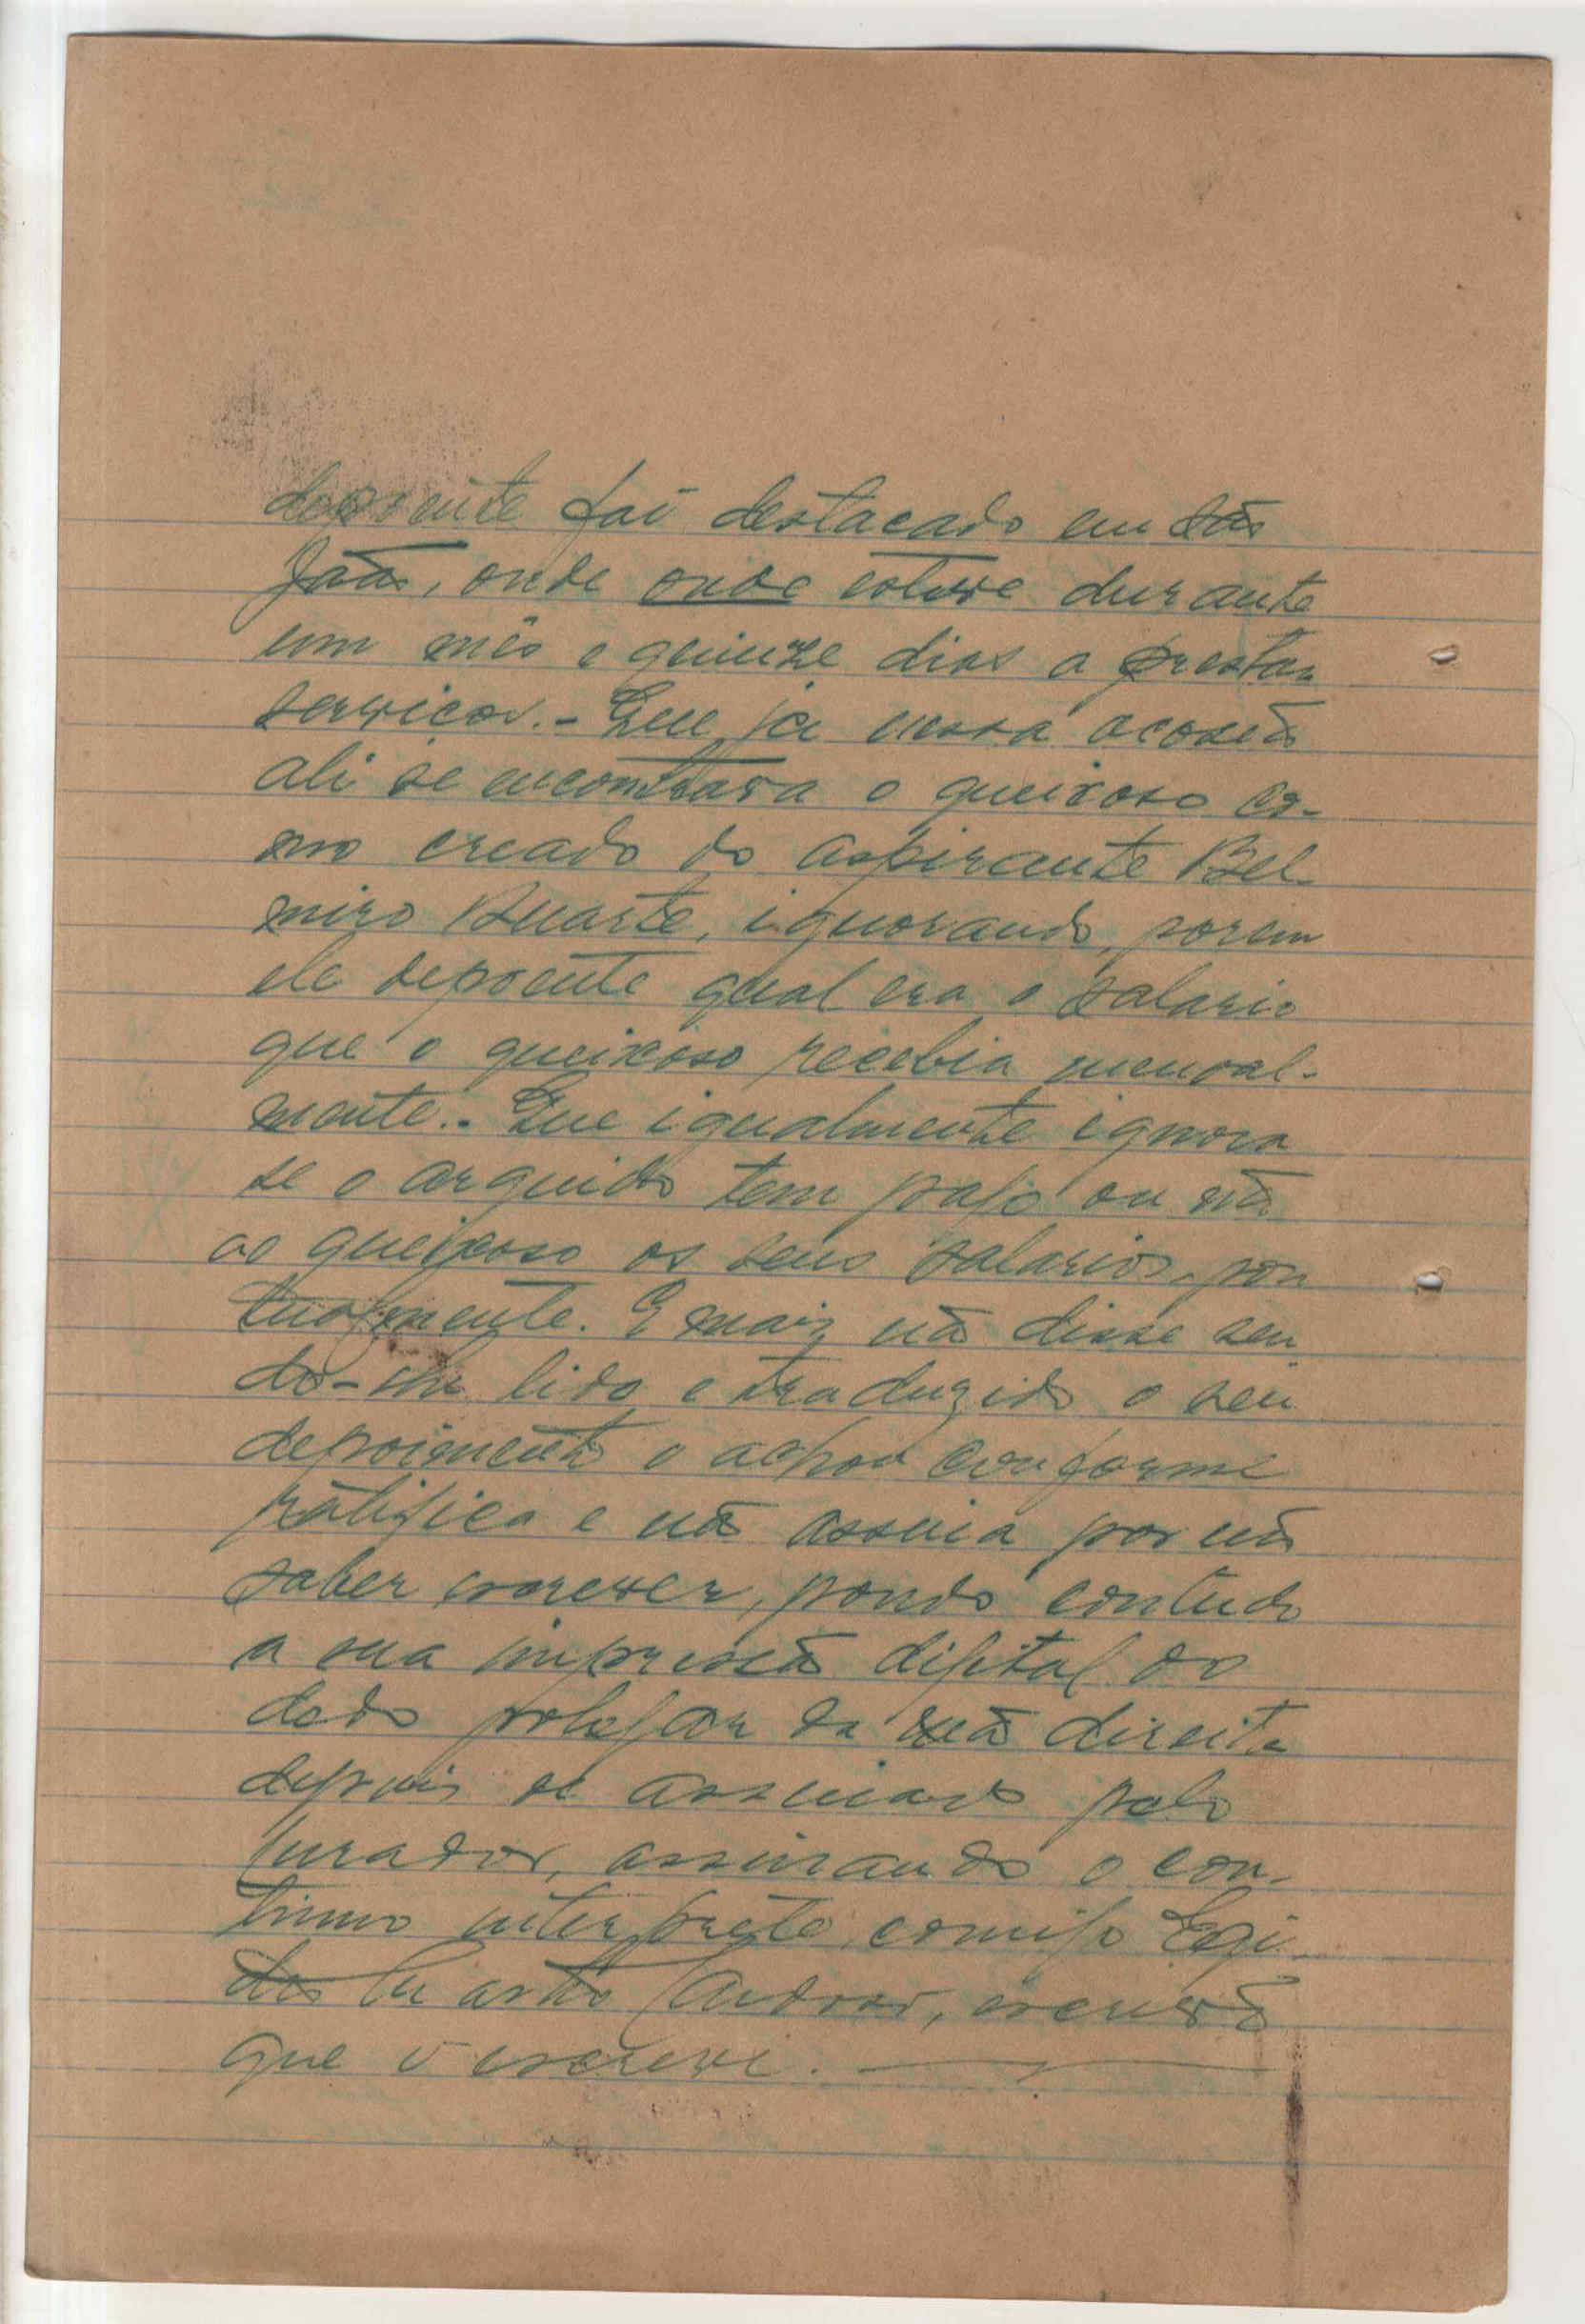 depoente foi destacado em São
João, onde onde esteve durante
um mês e quinze dias a prestar
serviços.- Que já nessa acasião
ali se encontrava o queixoso co-
mo creado do aspirante Bel-
miro Duarte, ignorando, porem
ele depoente qual era o salario
que o queixoso recebia mensal-
mente.- Que igualmente ignora
se o arguido tem pago ou não
ao queixoso os seus salarios, pon
tualmente. E mais não disse sen
do-lhe lido e traduzido o seu
depoimento o achou conforme
ratifica e não assina por não
saber escrever, pondo contudo
a sua impressão digital do
dedo polegar da mão direita
depois de assinado pelo
Curador, assinando o con-
tinuo interprete comigo
escrivão
que o escrevi.